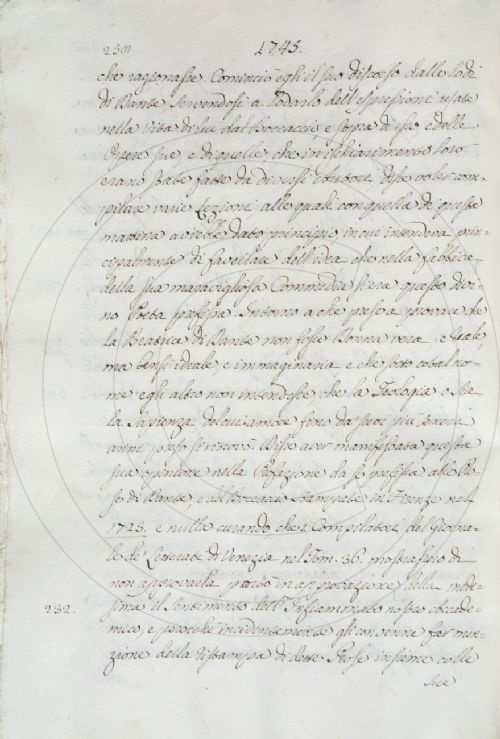 230. 1745.
che ragionasse. Cominciò egli il suo discorso dalle lodi
di Dante, servendosi a lodarlo dell'espressioni usate
nella Vita di lui dal Boccaccio, e sopra di esso, e delle
Opere sue, e di quelle, che in ischiarimento loro
erano state fatte da diversi autori, disse voler com-
pilare varie Lezioni, alle quali con quella di questa
mattina avrebbe dato principio, in cui intendeva prin-
cipalmente di favellare dell'idea che nella fabbrica
della sua maravigliosa Commedia s'era questo divi-
no Poeta prefissa. Intorno a che prese a provare che
la Beatrice di Dante non fosse Donna vera, e reale,
ma bensì ideale, e immaginaria, e che sotto cotal no-
me egli altro non intendesse che la Teologia, o sia
la Sapienza, della cui amore fino da' suoi più teneri
anni preso si ritrovò. Disse aver manifestata questa
sua opinione nella Prefazione da se premessa alle Pro-
se di Dante, e del Boccaccio stampate in Firenze nel
1723. e nulla curando, che i Compilatori del Giorna-
le de' Letterati di Venezia nel Tom. 36. mostrassero di
non approvarla, portò in approvazione della mede-
232. sima il sentimento dell'Infiammato nostro Accade-
mico, e perocchè incidentemente gli convenne far men-
zione della ristampa di dette Prose insieme colle